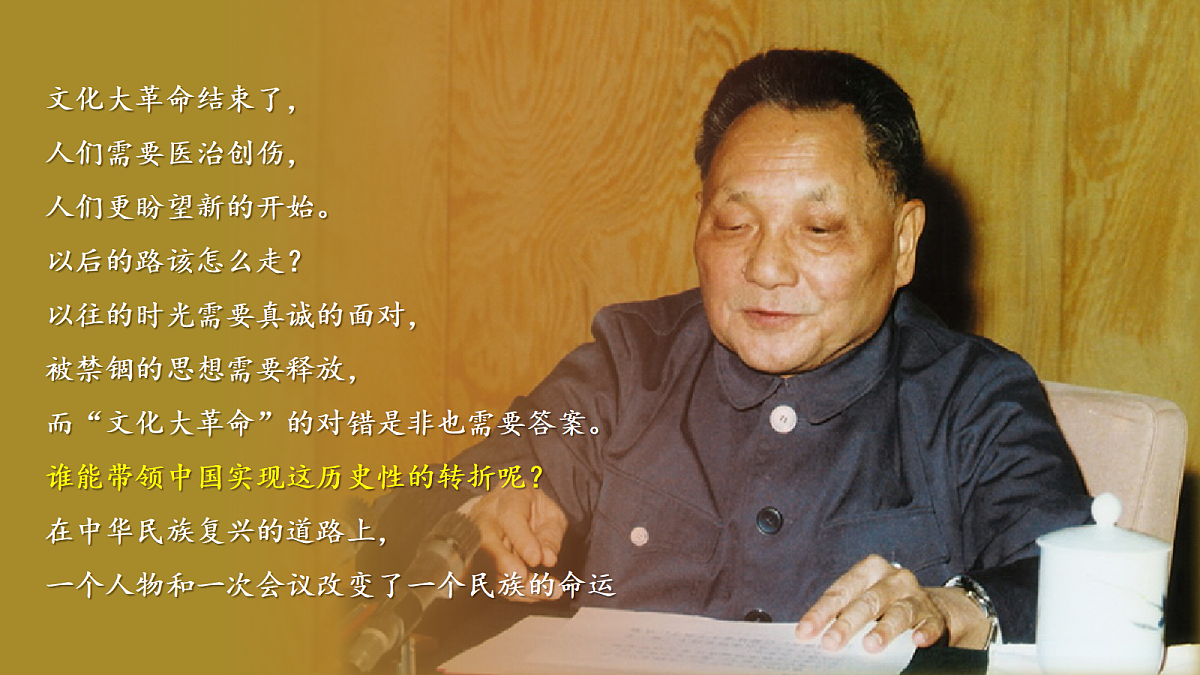 文化大革命结束了，
人们需要医治创伤，
人们更盼望新的开始。
以后的路该怎么走？
以往的时光需要真诚的面对，
被禁锢的思想需要释放，
而“文化大革命”的对错是非也需要答案。
谁能带领中国实现这历史性的转折呢？
在中华民族复兴的道路上，
一个人物和一次会议改变了一个民族的命运